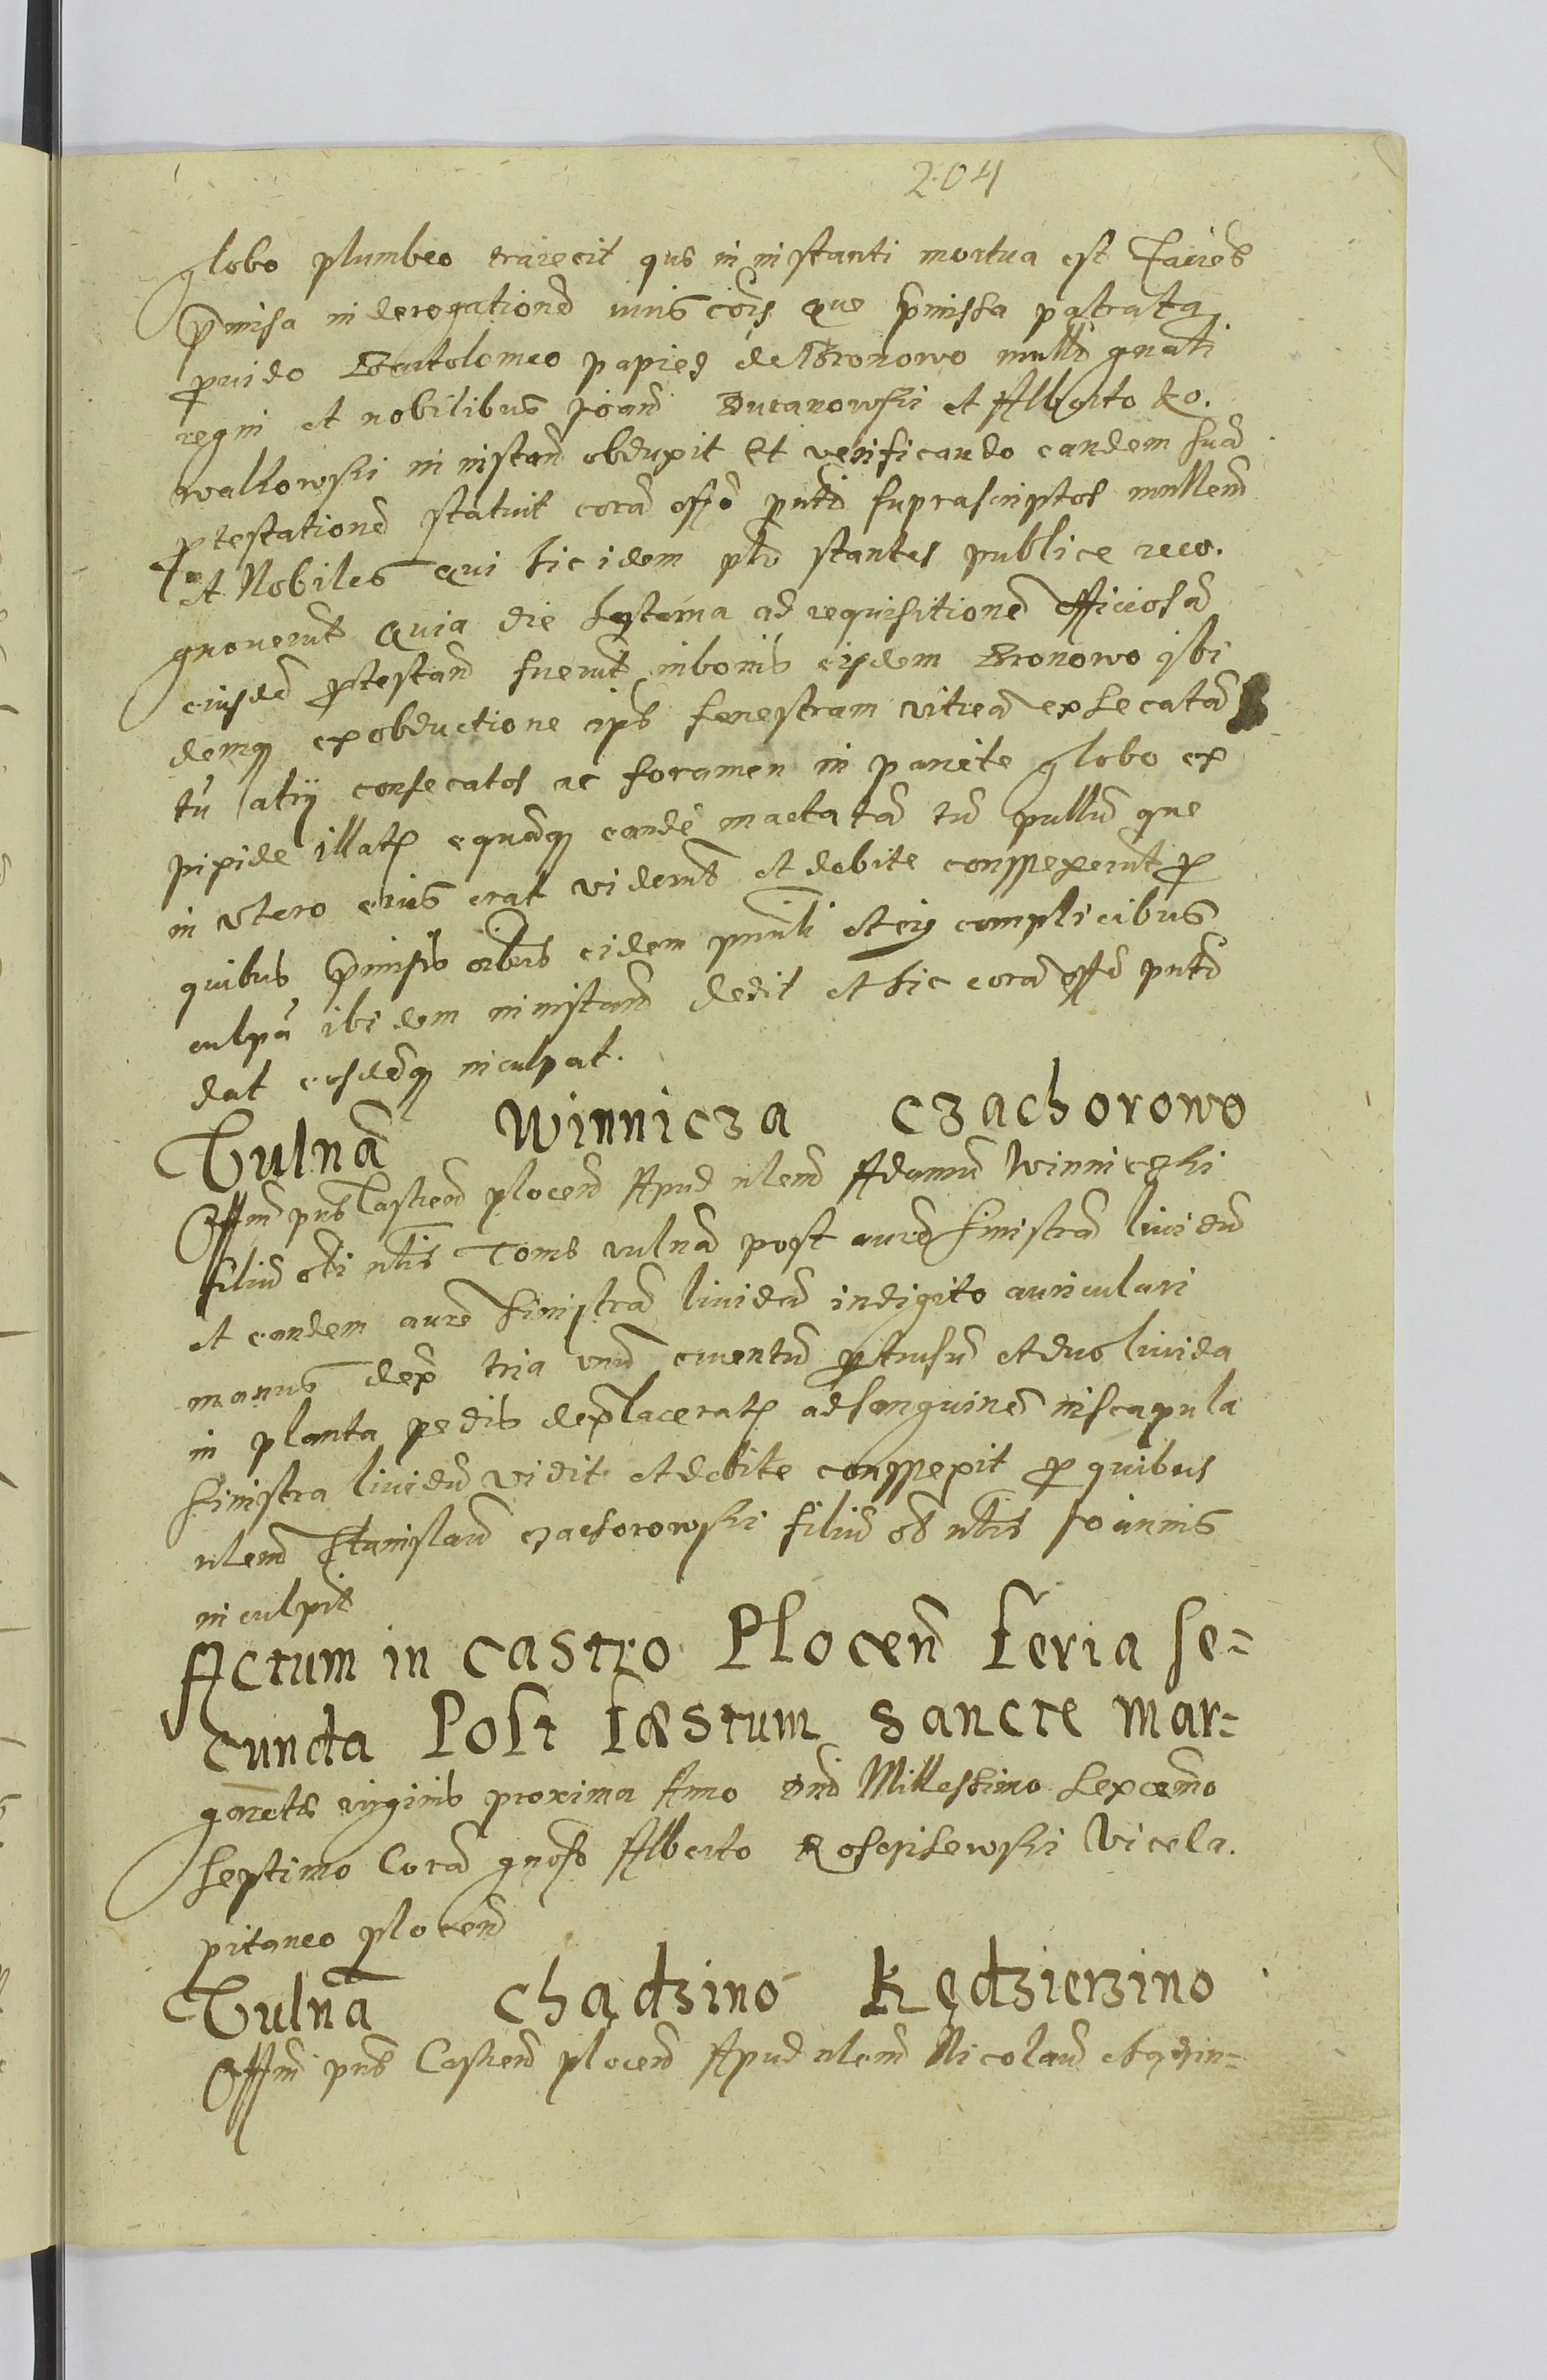 204
globo plumbeo traiecit qus in instanti mortua est faciens
pmissa in derogationem iuris cois que pmissa patrata
provido Bartolomeo papies de Bronowo mllri gnali
regni et nobilibus Joan Ducanowski et Alberto Ko.
wallowski in instan obduxit Et verificando eandem sua
ptestationem statuit cora offo pntd suprascriptos mllem
et Nobiles qui hic idem pld stantes publice reco.
gnoverunt Quia die hesterna ad requisitionem officiosa
eiusdem ptestan fuerunt in bonis eisdem Bronowo ibi
demq ex obductione ips fenestram vitrea exsecata
tu atrij consecatos ac foramen in pariete globo ex
pixide illatu equaq eande mactata tu pullu que
in utero eius erat viderunt et debite conspexerunt p
quibus pmissis oibus eidem et eis complicibus
culpa ibidem in instan dedit et hic cora offo pntd
dat eosdeq inculpat.
Vulna Winnicza Czachorowo
Offm pns Castren plocen Apud nlem Adamu Winniczki
filiu olti nlis Toms vulna post aure sinistra lividu
et eandem aure sinistra livida in digito auriculari
manus dex tria unu cruentu ptrusu et duo livida
in planta pedis dex laceratu ad sanguinem in scapula
sinistra lividu vidit et debite conspexit p quibus
nlem Stanislau czachorowski filiu ol nlis Joannis
inculpat
Actum in Castro Plocen feria se=
cunda Post faestum sancte Mar=
garete virginis proxima Anno Dni Millessimo sexcemo
septimo Cora gnoso Alberto Kossissewski Viceca.
pitaneo plocen
Vulna Chądzino Kędzierzino
Offm pns Castren plocen Apud nlem Nicolau chądzin=